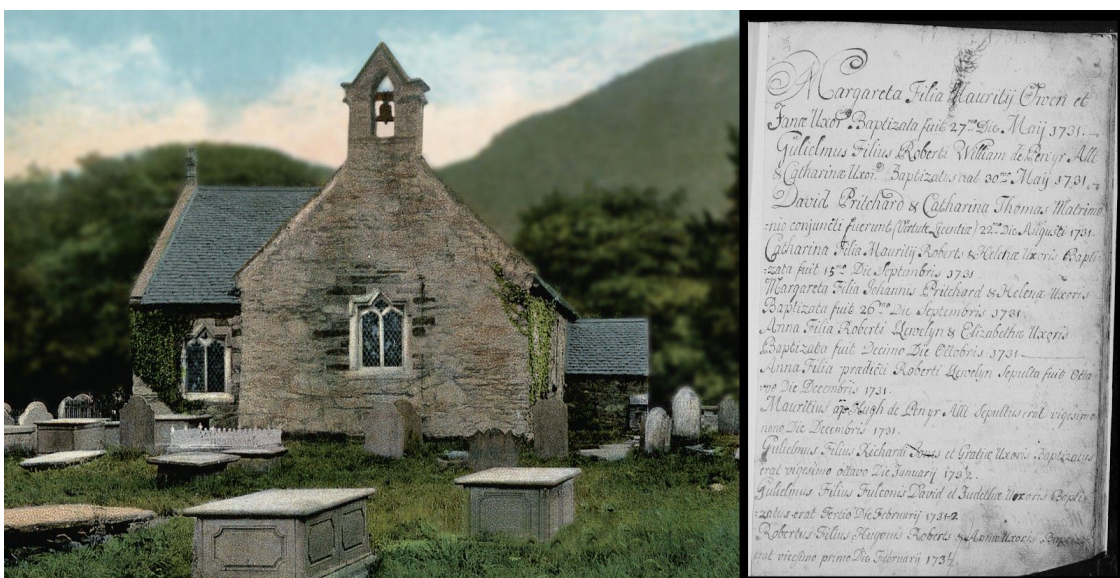 Margareta Filia Mauritij Owen et
Janæ Uxor.s Baptizata fuit 27.mo Die Maij 1731.
Gulielmus Filius Roberti William de Penyr Allt
& Catharinæ Uxor.s Baptizatus erat 30.mo Maij 1731.
David Pritchard & Catharina Thomas Matrimo
=nio conjuncti fuerunt (Virtute Licentiæ) 22.do Die Augusti 1731.
Catharina Filia Mauritij Roberts & Helenæ Uxoris Bapti
=zata fuit 15.mo Die Septembris 1731
Margareta Filia Johannis Pritchard & Helenæ Uxoris
Baptizata fuit 26.mo Die Septembris 1731.
Anna Filia Roberti Llewelyn & Elizabethæ Uxoris
Baptizata fuit Decimo Die Octobris 1731
Anna Filia prædicti Roberti Llewelyn Sepulta fuit Octa
Die Decembris 1731.
Mauritius ap Hugh de Penyr Allt Sepultus erat vigesimo
nono Die Decembris 1731.
Gulielmus Filius Richardi et Gratiæ Uxoris Baptizatus
erat vigesimo octavo Die Januarij 173½
Gulielmus Filius Fulconis David et Uxoris Bapti
=zatus erat Tertio Die Februarij 1731-2
Robertus Filius Hugonis Roberts & Annæ Uxoris
erat vicesimo primo Die Februarij 173½